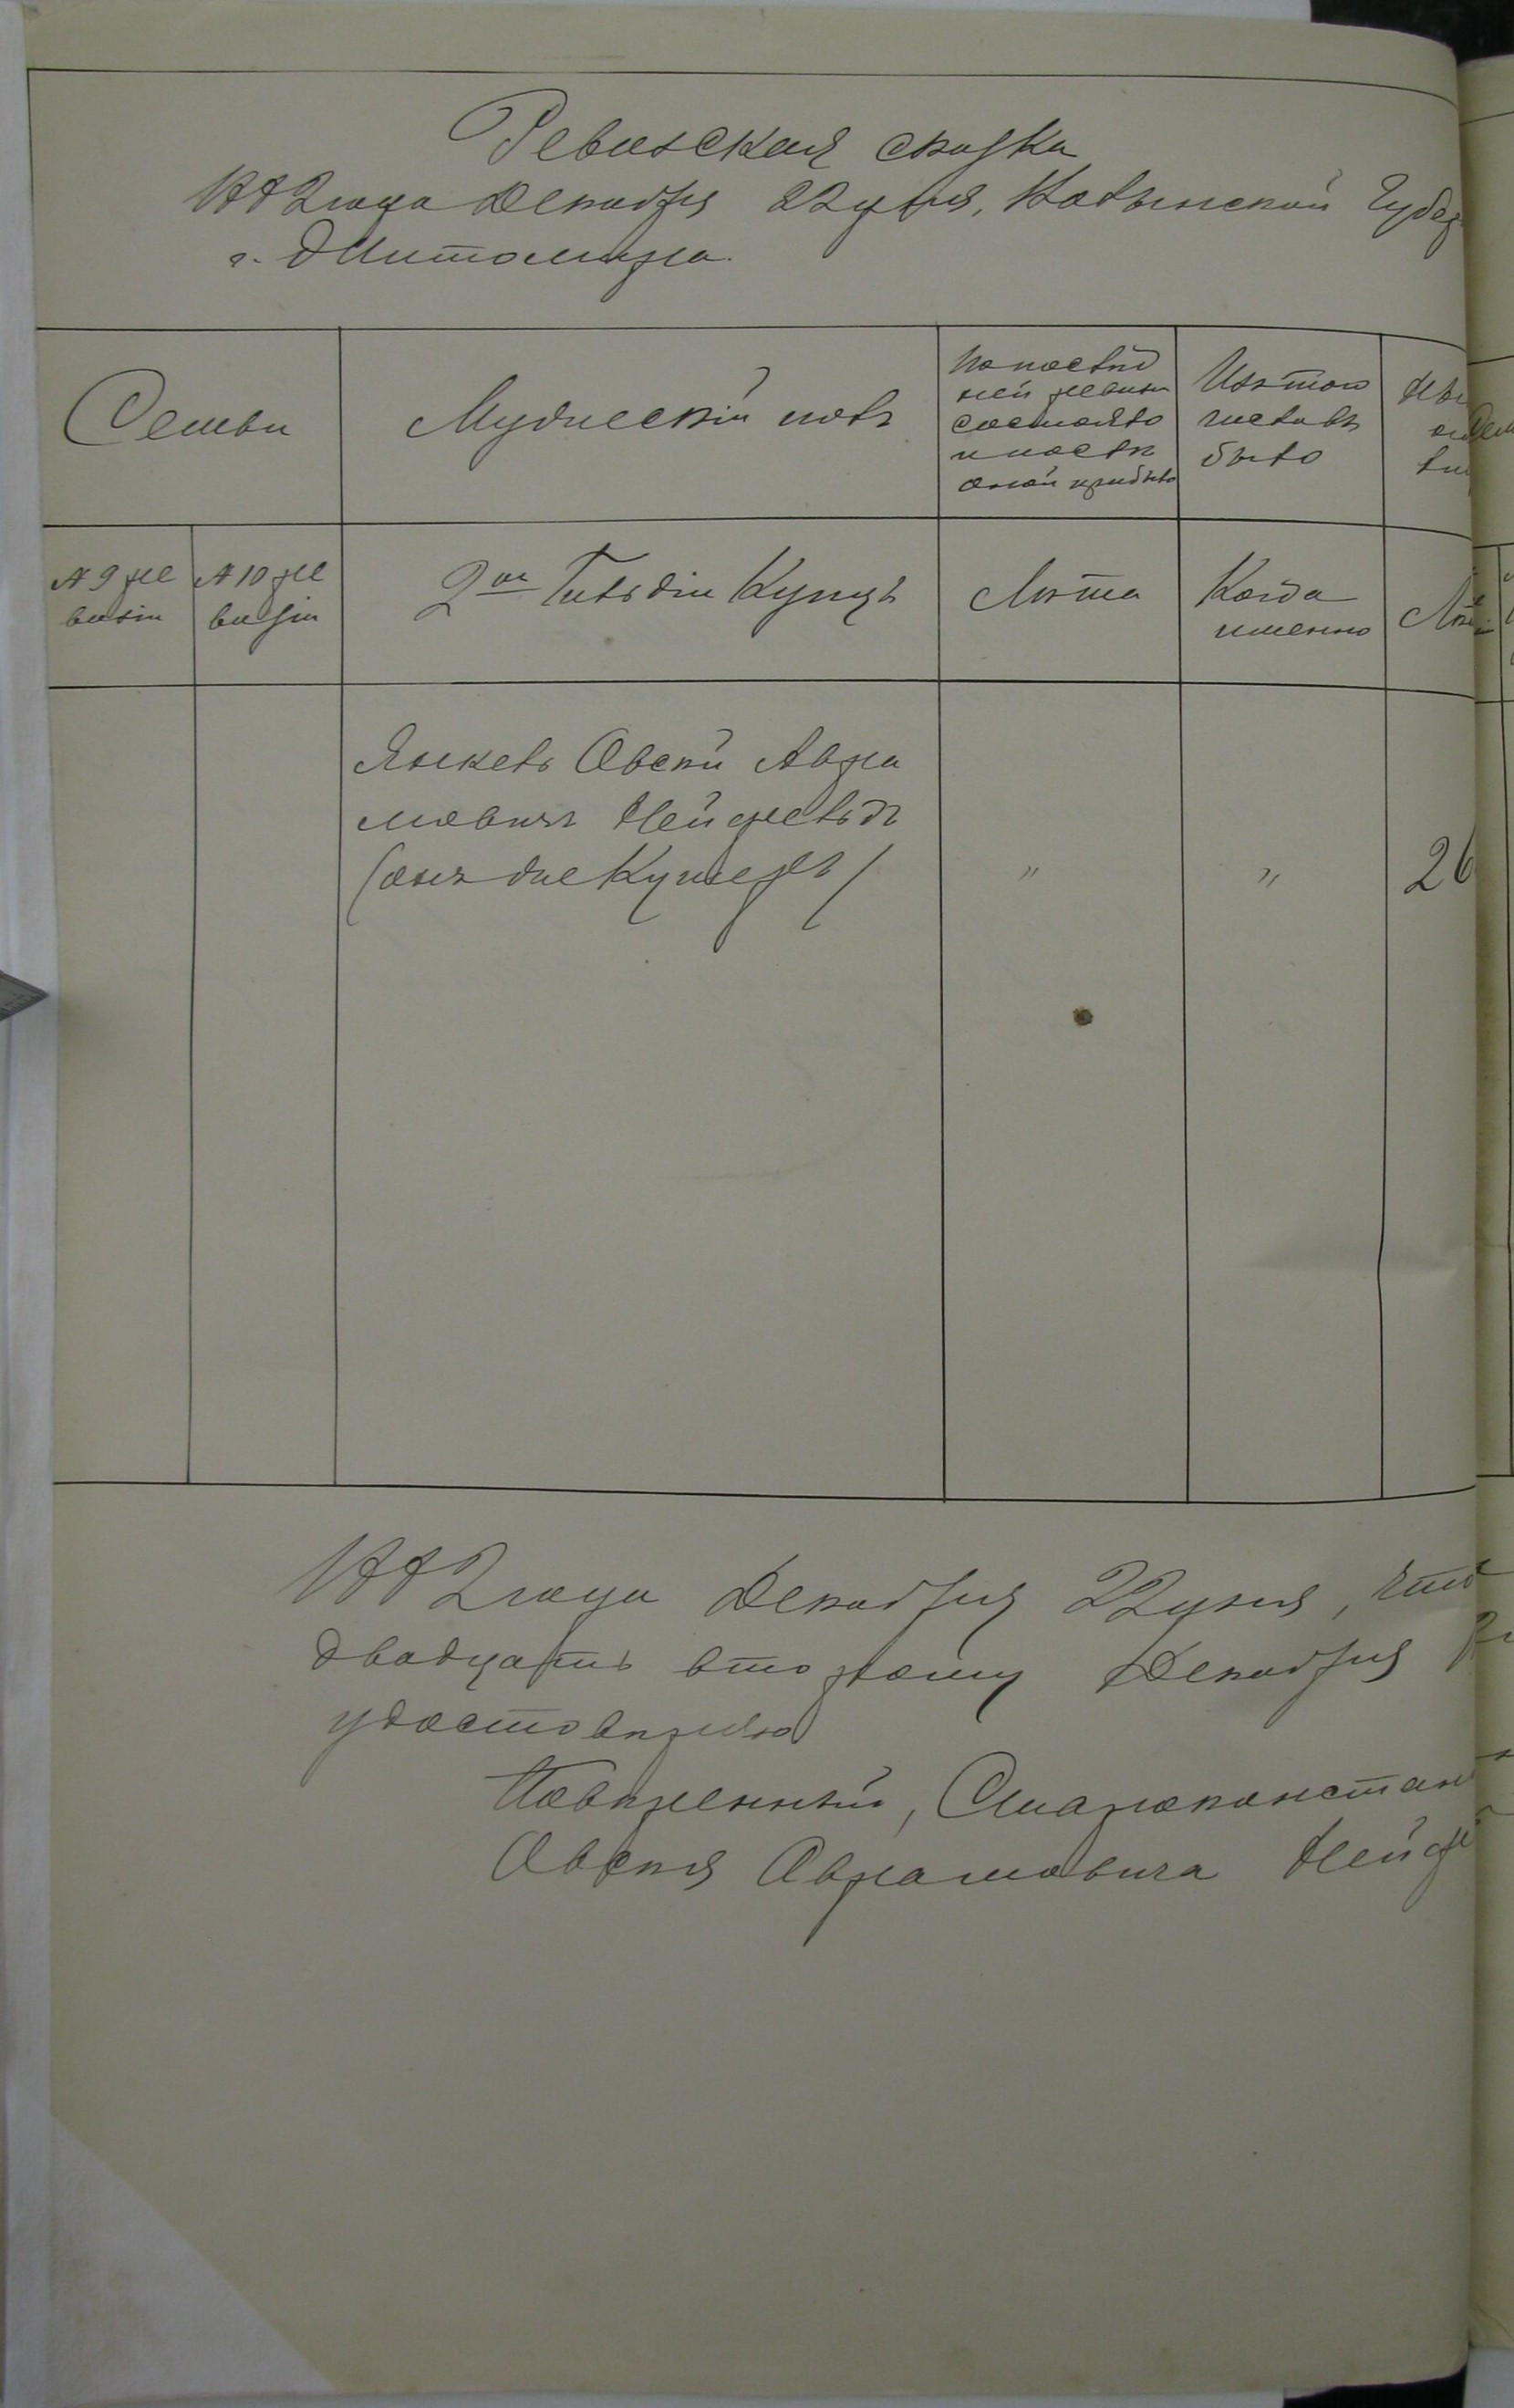 Ревизская сказка
1882 года Декабря 22 дня, Волынской Губер
г. Житомира.
Семьи
Мужескій полъ
По послѣд
ней ревизіи
состояло
и послѣ
оной прибыло
Изъ того
числа
было
№ 9 ре
визіи
№ 10 ре
визіи
2ой Гильдіи Купцъ
Лѣта
Когда
именно
Янкель Овсій Авра
мовичъ Нейфельдъ
(онъ же Кушеръ)
"
"
26
1882 года Декабря 22 дня, что
двадцать второму Декабря
удостовѣряю
Повѣренный, Староконстан
Овсія Аврамовича Нейфе